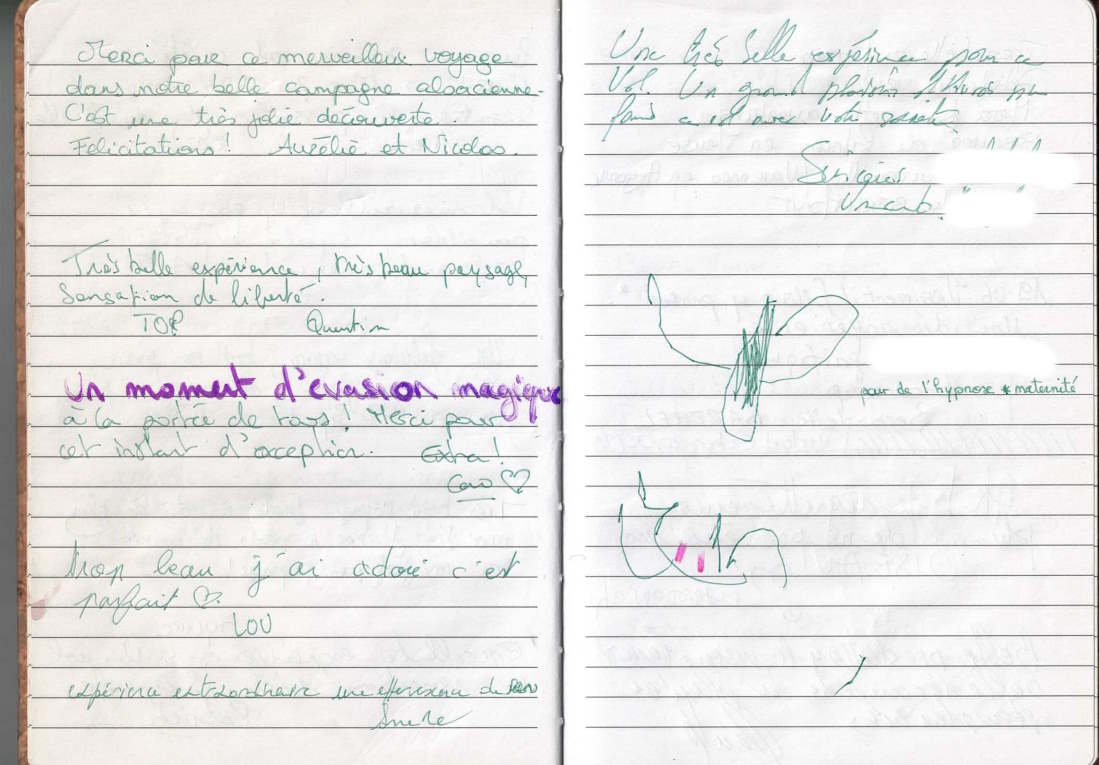 Merci pour ce merveilleux voyage
dans notre belle campagne alsacienne.
C'est une très jolie découverte.
Félicitations! Aurélie et Nicolas.
Très belle expérience, très beau paysage,
Sensation de liberté.
TOP Quentin
Un moment d'evasion magique
à la portée de tous! Merci pour
cet instant d'exception. Extra!
Caro ♡
Trop beau j'ai adoré c'est
parfait ♡.
LOU
expérience extraordinaire une de
Une très belle expérience pour ce
Vol. Un grand plaisir
avec votre société
pour de l'hypnose * maternité